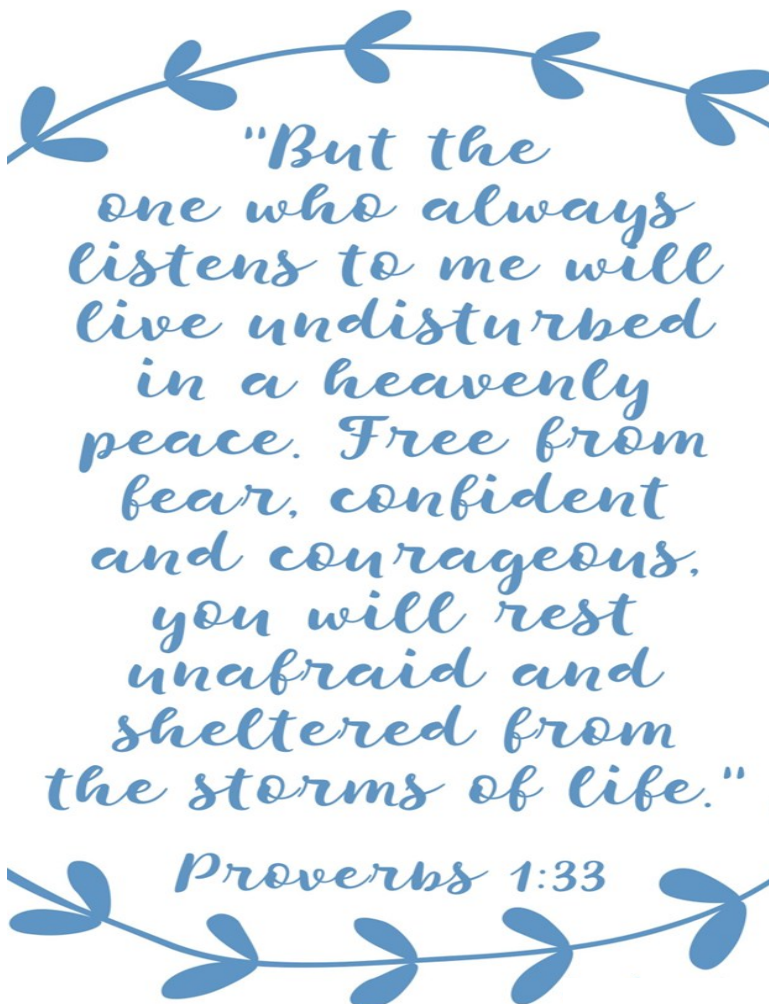 "But the
one who always
listens to me will
live undisturbed
in a heavenly
peace. Free from
fear, confident
and courageous,
you will rest
unafraid and
sheltered from
the storms of life."
Proverbs 1:33